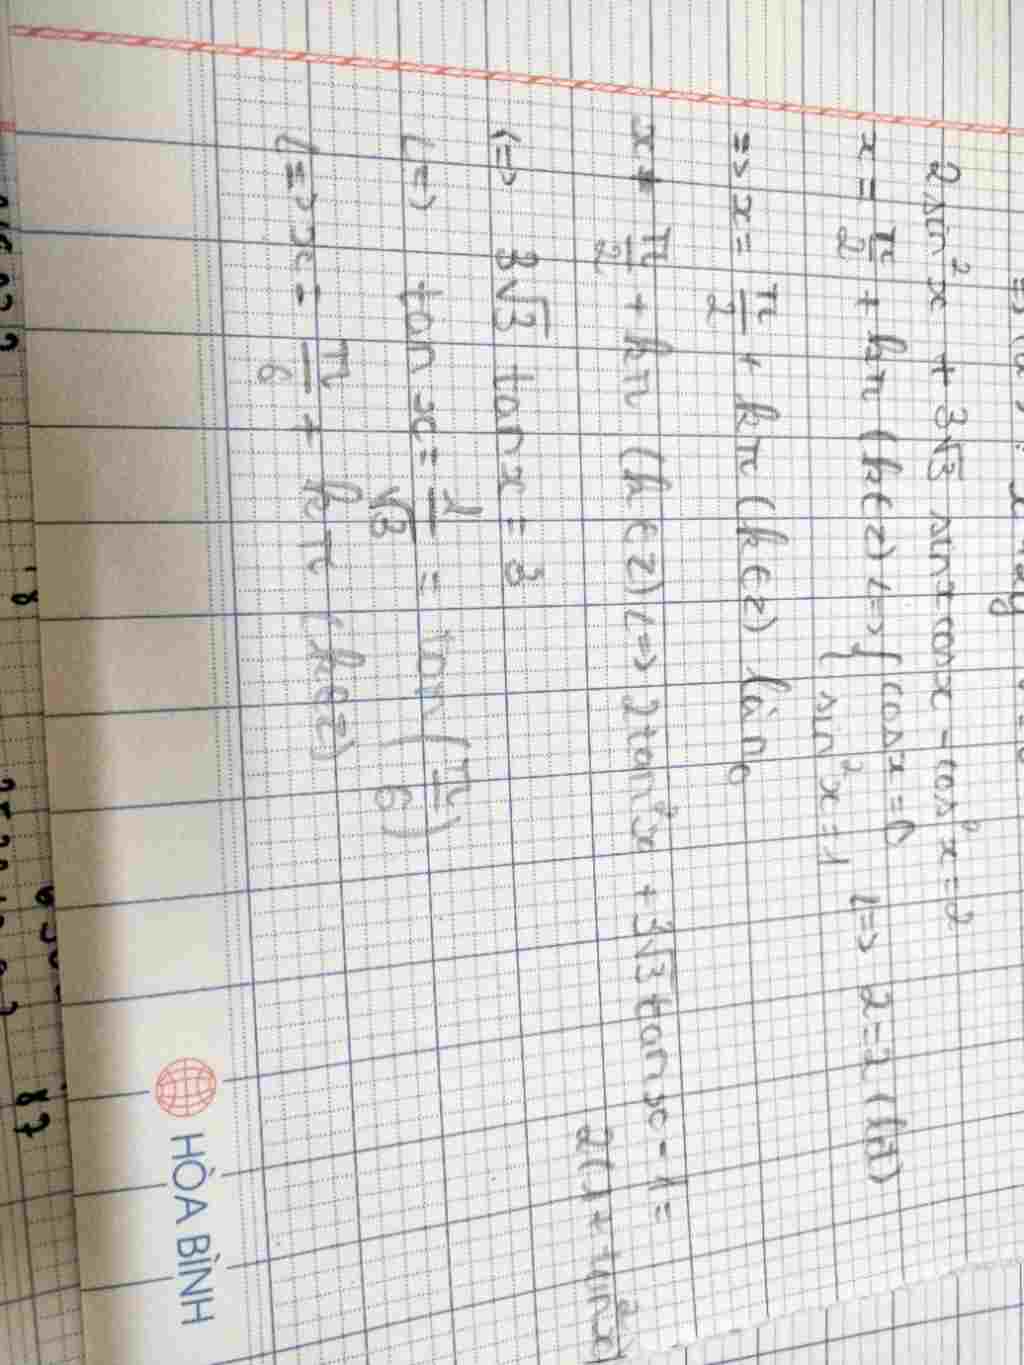 2sin²x + 3√3 sinx cosx - cos²x = 2
x = π/2 + kπ (k∈z) <=> { cosx = 0 <=> 2 = 2 (lđ)
sin²x = 1
=> x = π/2 + kπ (k∈z) là no
x ≠ π/2 + kπ (k∈z) <=> 2tan²x + 3√3 tanx - 1 =
2(1 + tan²x)
<=> 3√3 tanx = 3
<=> tanx = 1/√3 = tan(π/6)
<=> x = π/6 + kπ (k∈z)
HÒA BÌNH